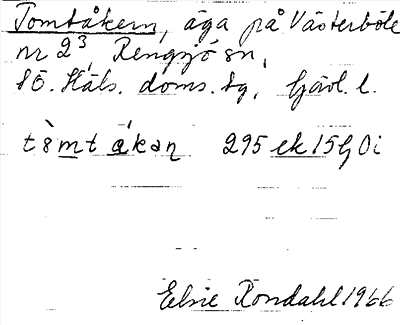 Tomtåkern, äga på Västerböle
nr 2³, Rengsjö sn,
SÖ. Häls. doms. sg, Gävl. l.
tòmt åkan 295 ek 15G 0i
Elsie Rondahl 1966